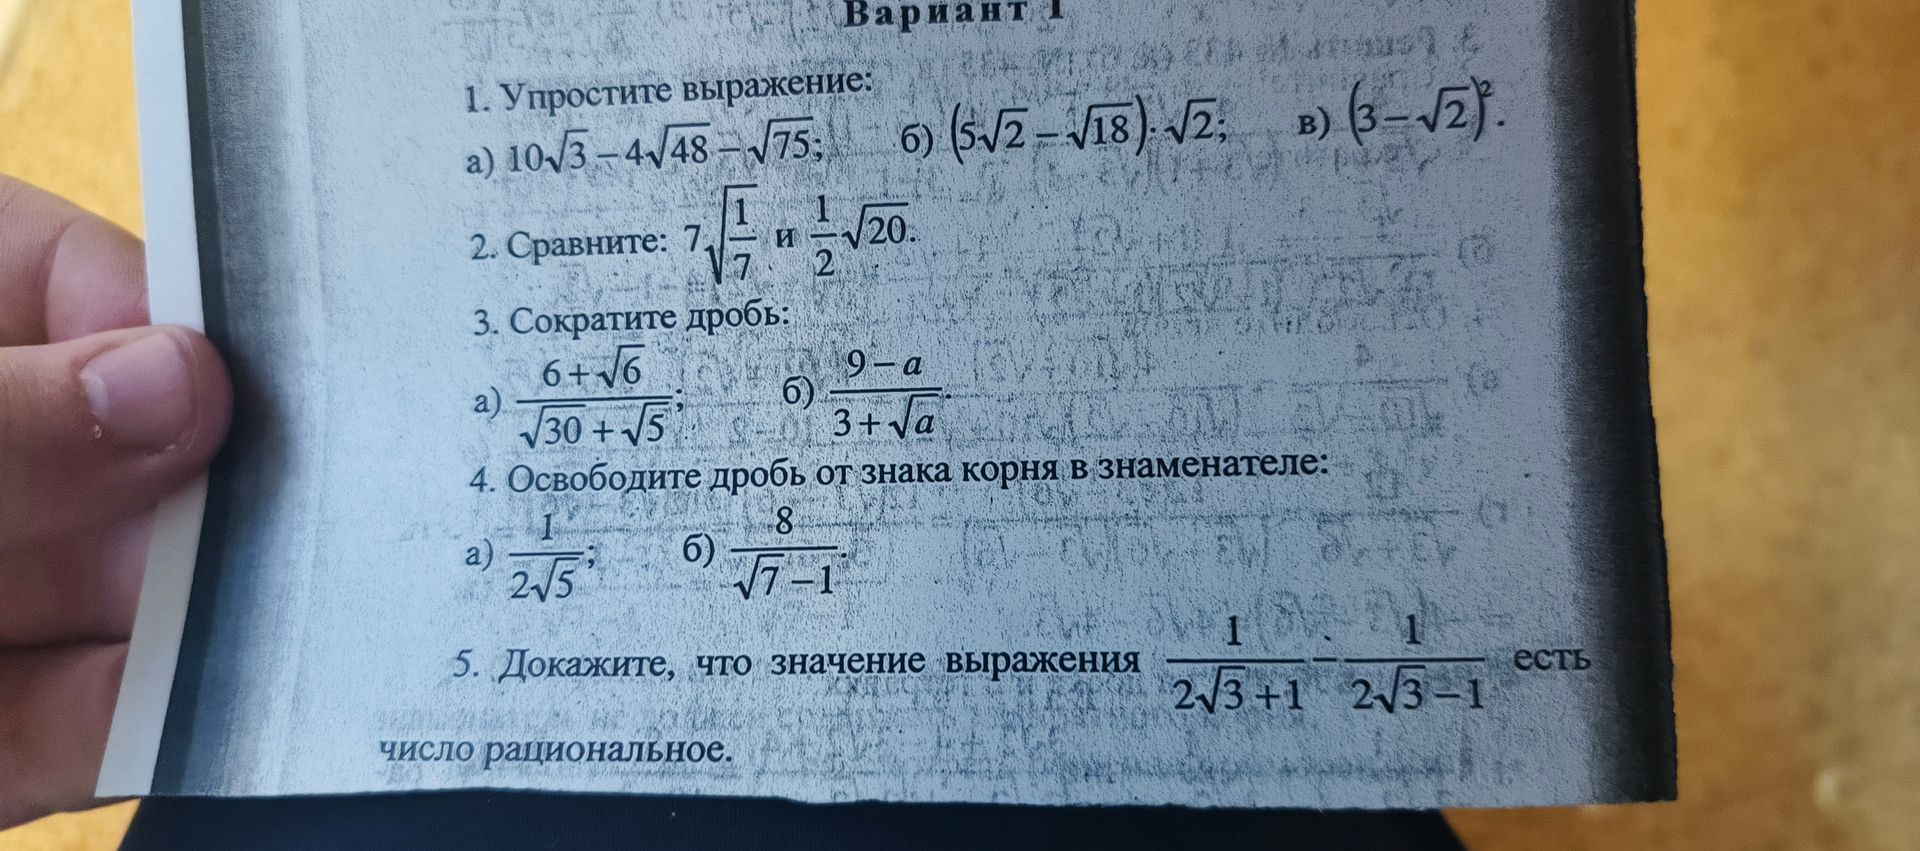 Вариант 1
1. Упростите выражение:
а) 10√3 − 4√48 − √75; б) (5√2 − √18)·√2; в) (3 − √2)².
2. Сравните: 7√(1/7) и 1/2 √20.
3. Сократите дробь:
а) (6 + √6)/(√30 + √5); б) (9 − a)/(3 + √a).
4. Освободите дробь от знака корня в знаменателе:
а) 1/(2√5); б) 8/(√7 − 1).
5. Докажите, что значение выражения 1/(2√3 + 1) − 1/(2√3 − 1) есть
число рациональное.